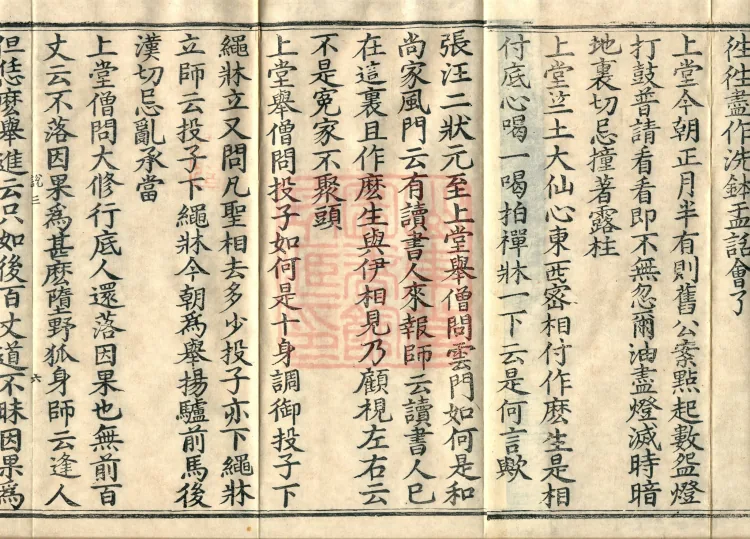 徃徃盡作洗鉢盂話會了
上堂今朝正月半有則舊公案點起數盌燈
打鼓普請看看即不無忽爾油盡燈滅時暗
地裏切忌撞著露柱
上堂竺土大仙心東西密相付作麽生是相
付底心喝一喝拍禪牀一下云是何言歟
張汪二狀元至上堂舉僧問雲門如何是和
尚家風門云有讀書人來報師云讀書人已
在這裏且作麽生與伊相見乃顧視左右云
不是冤家不聚頭
上堂舉僧問投子如何是十身調御投子下
繩牀立又問凡聖相去多少投子亦下繩牀
立師云投子下繩牀今朝爲舉揚驢前馬後
漢切忌亂承當
上堂僧問大修行底人還落因果也無前百
丈云不落因果爲甚麽墮野狐身師云逢人
説三 六
但恁麽舉進云只如後百丈道不昧因果爲